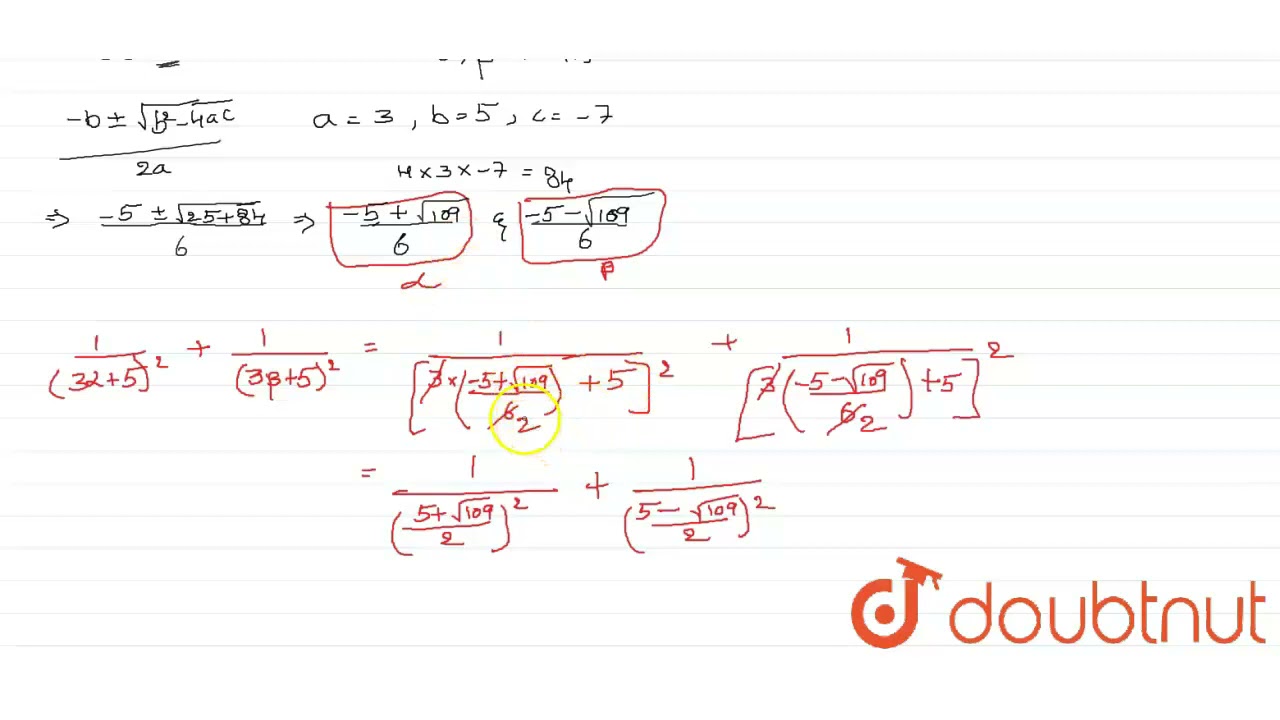 -b ± √b²-4ac / 2a   a = 3 , b = 5 , c = -7
4 × 3 × -7 = 84
⇒ -5 ± √25+84 / 6 ⇒ -5 + √109 / 6 & -5 - √109 / 6
α β
1/(3α+5)² + 1/(3β+5)² = 1/[3×(-5+√109/6 2) + 5]² + 1/[3(-5-√109/6 2) + 5]²
= 1/(5+√109/2)² + 1/(5-√109/2)²
doubtnut